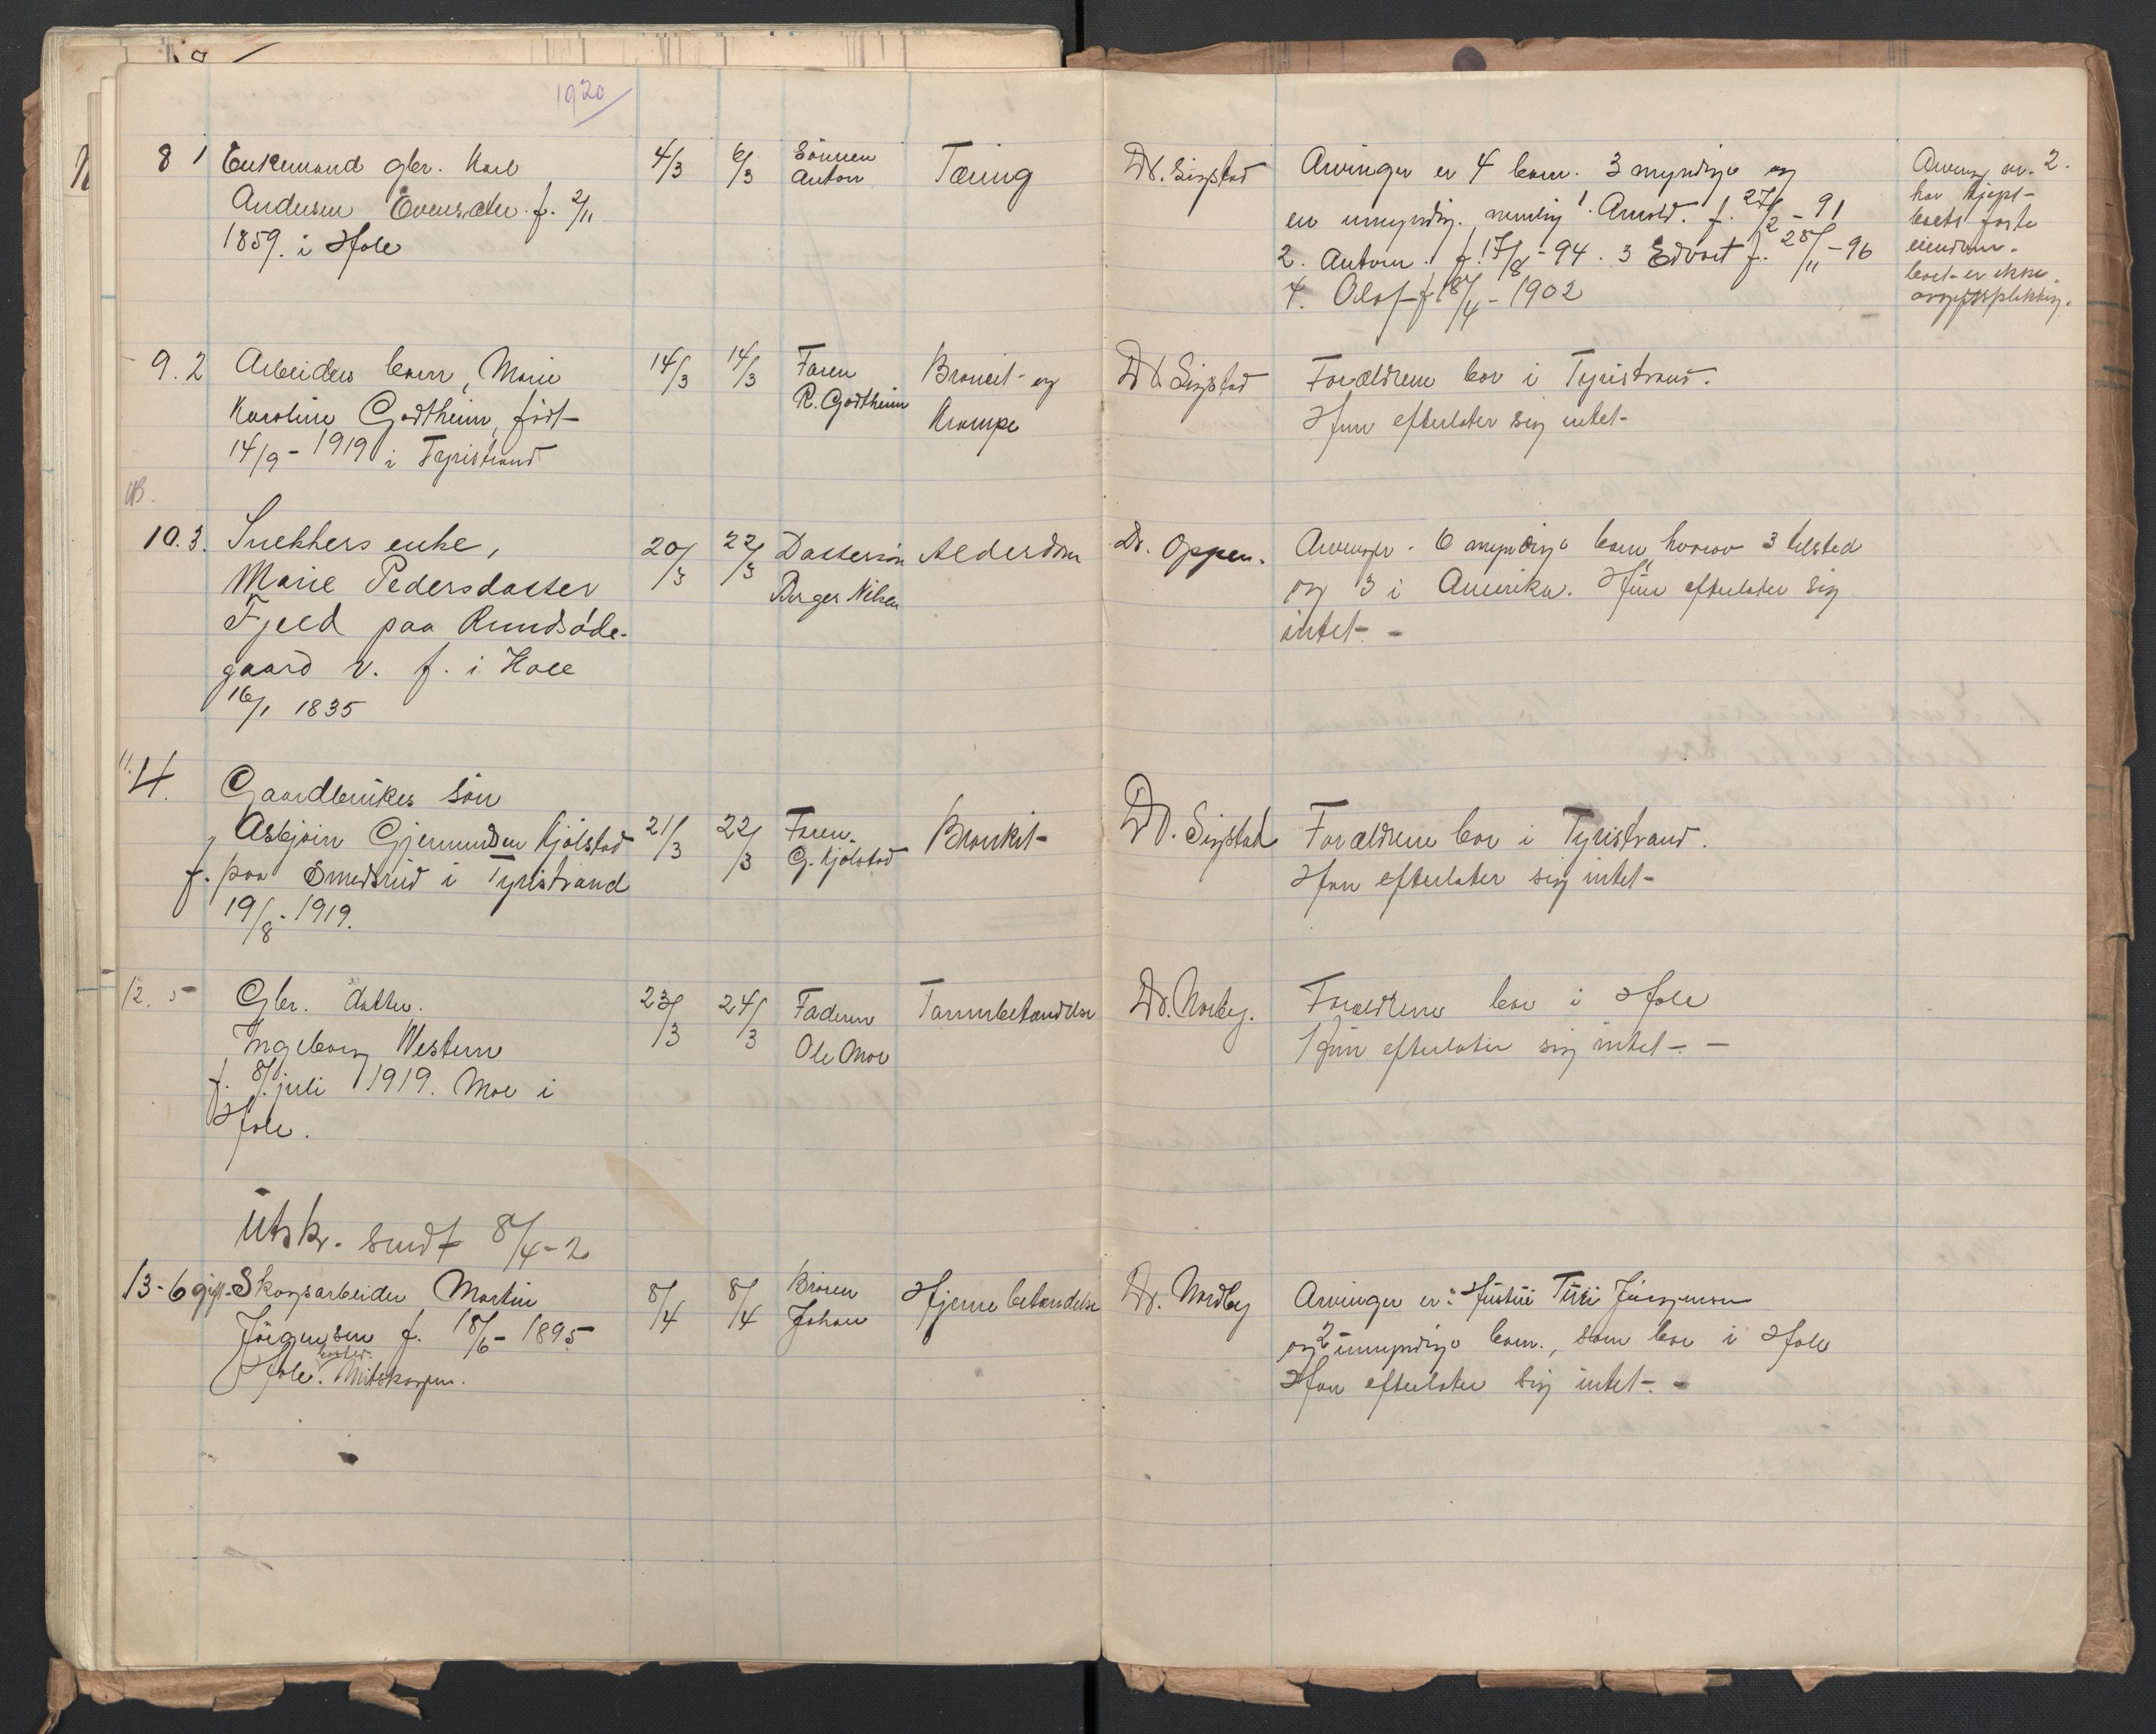 1920
8 1 Enkemand gbr. Karl 4/3 6/3 Sönnen Anton Tæring Dr. Sigstad Arvinger er 4 barn. 3 myndige og Arving nr. 2.
Andersen f. 2/11 en umyndig, nemlig 1. Arnold. f. 27/2 - 91 har kjøpt
1859. i Hole 2. Anton f. 17/8 - 94. 3 Edvart f. 25/11 - 96 boets faste
4. Olaf f. 18/4 - 1902 eiendom.
boet er ikke
avgiftspliktig.
9. 2 Arbeiders barn, Marie 14/3 14/3 Faren Broncit og Dr. Sigstad Forældrene bor i Tyristrand.
Karoline Godtheim, født R. Godtheim Krampe Hun efterlater sig intet
14/9 - 1919 i Tyristrand
10. 3. Snekkers enke, 20/3 22/3 Dattersøn Alderdom Dr. Oppen. Arvinger. 6 myndige barn, hvorav 3 tilsted
Marie Pedersdatter Birger Nilsen og 3 i Amerika. Hun efterlater sig
Fjeld paa Rundsøde- intet -
gaard v. f. i Hole
16/1 1835
11. 4. Gaardbrukes sön
Asbjørn Gjermundsen Kjölstad 21/3 22/3 Faren. Bronkit Dr. Sigstad Forældrene bor i Tyristrand.
f. paa Smedsrud i Tyristrand G. Kjölstad Han efterlater sig intet -
19/8 - 1919.
12. 5 Gbr. datter. 23/3 24/3 Faderen Tarmbetændelse Dr. Norby. Forældrene bor i Hole
Ingeborg Western Ole Moe Hun efterlater sig intet. -
f. 8/ juli 1919. Moe i
Hole.
Utskr. sendt 8/4 - 2
13 - 6 gift. Skogsarbeider Martin 8/4 8/4 Broren Hjernebetændelse Dr. Nordby Arvinger er: Hustru Turi Jörgensen
Jörgensen f. 18/6 - 1895 Johan og 2 umyndige barn., som bor i Hole
Hole. bosted. Han efterlater sig intet. -